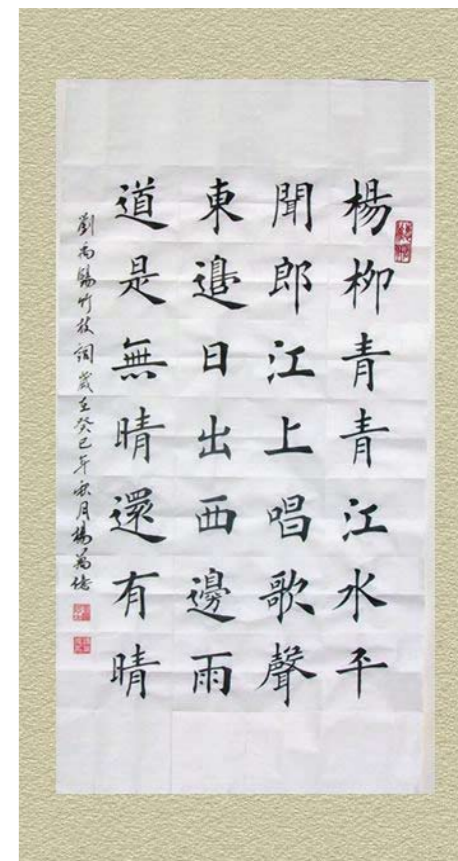 楊柳青青江水平
聞郎江上唱歌聲
東邉日出西邊雨
道是無晴還有晴
劉禹錫竹枝詞歲在癸巳年秋月楊